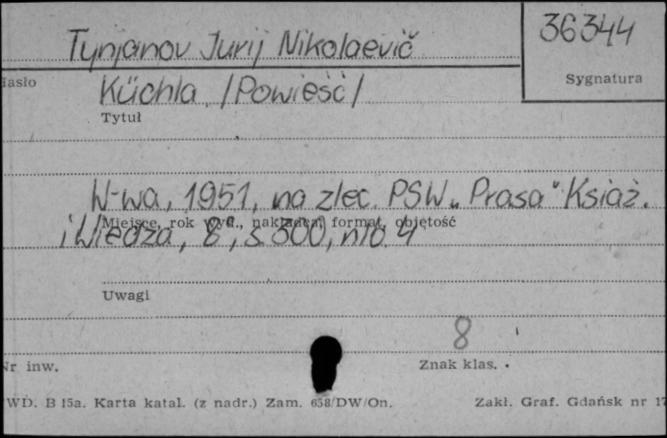 Tynjanov Jurij Nikolaevič
36344
Hasło
Sygnatura
Küchla /Powieść/
Tytuł
W-wa, 1951, na zlec. PSW „Prasa" Książ.
Miejsce, rok wyd., nakładem, format, objętość
i Wiedza, 8°, s. 300, nlb. 4
Uwagi
8
Nr inw.
Znak klas.
WD. B 15a. Karta katal. (z nadr.) Zam. 658/DW/On.
Zakł. Graf. Gdańsk nr 17